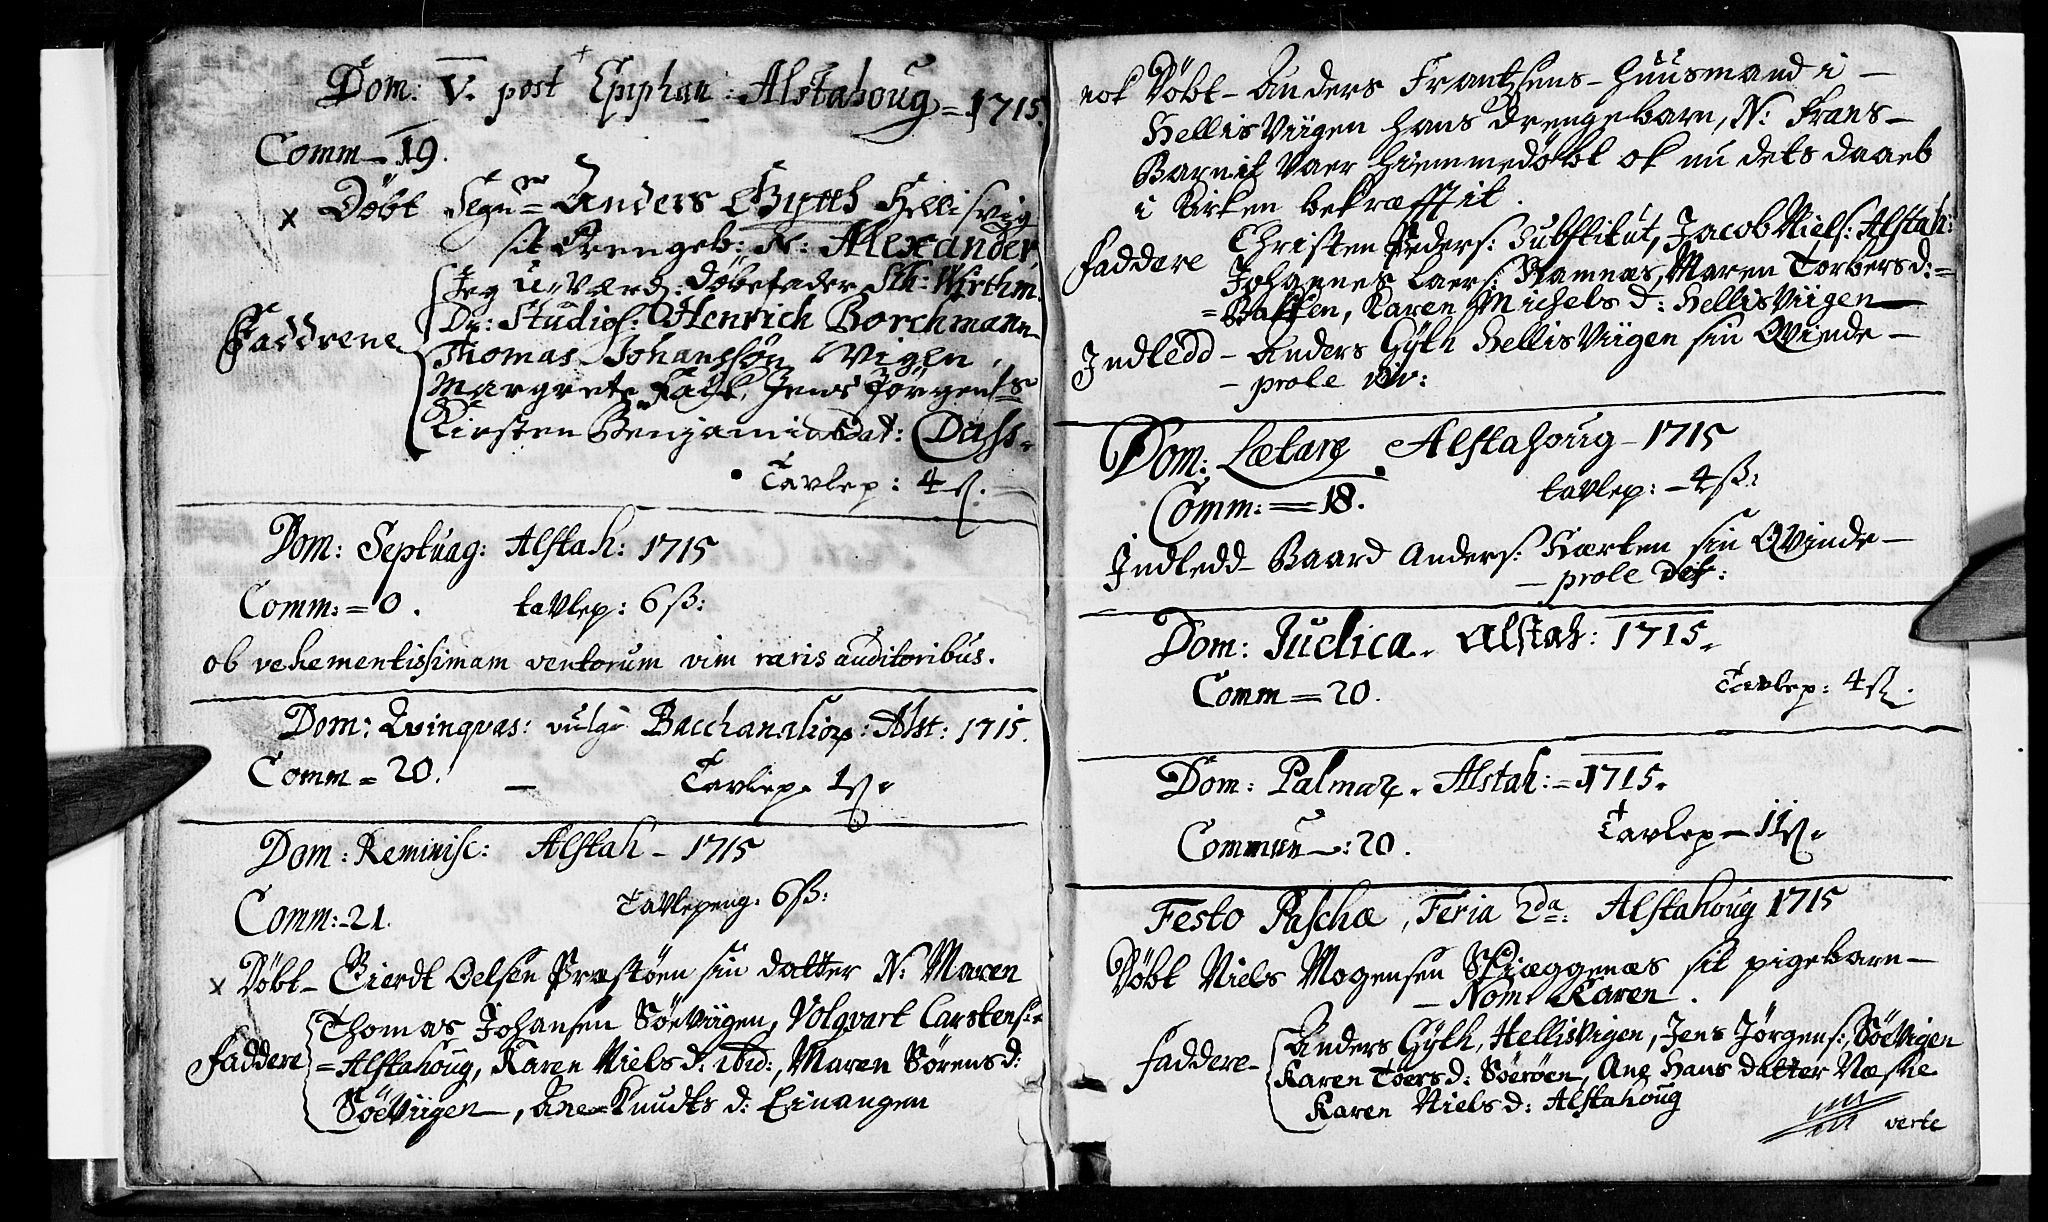 Dom: V. post Epiphan: Alstahoug = 1715.
Comm - 19.
x Døbt Segnr = Anders Gytth Hellisvig
sit Drengeb: N: Alexander
Faddrene
Jeg u-værd: døbefader Sth: Wirthm.
Dn: Studios: Henrich Borchmann
Thomas Johanssøn Vigen,
Margrete Falk, Jens Jørgens
Kirsten Benjamins dat: Dass.
Tavlep: 4 ß.
Dom: Septuag: Alstah: 1715
Comm: = 0. tavlep: 6 ß:
ob vehementissimam ventorum vim raris auditoribus.
Dom: Qvinqvas: vulgo Bacchanalior: Alst: 1715.
Comm = 20. - Tavlep. 1 ß.
Dom: Reminisc: Alstah - 1715
Comm: - 21. Tavlepeng. 6 ß:
x Døbt - Gierdt Oelsen Præstøen sin datter N: Maren
Faddere
Thomas Johansen Søeviigen, Volqvart Carstens:
= Alstahoug, Karen Niels d: ibid:, Maren Sørens d:
Søeviigen -, Ane Knudts d: Einangen
nok Døbt - Anders Frantzens - huusmand i -
Hellisviigen hans drengebarn, N: Frans -
Barnit vaer hiemmedøbt ok nu dets daab
i Kirken bekræfftit.
Faddere Christen Peders: Substitut, Jacob Niels: Alstah:
Johannes Laers: Ramnæs, Maren Torbers d: =
= Bakken, Karen Michels d: Hellisviigen -
Indledd - Anders Gyth Hellisviigen sin Qvinde -
- prole viv:
Dom: Lætare. Alstahoug - 1715
Comm: = 18. tavlep: - 4 ß:
Indledd - Baard Anders: Hærten sin Qvinde -
- prole def:
Dom: Judica. Alstah: 1715.
Comm = 20. Tavlep: 4 ß.
Dom: Palmar. Alstah: = 1715.
Commun -: 20. Tavlep - 11 ß.
Festo Paschæ, Feria 2da: Alstahoug 1715
Døbt Niels Mogensen Skiæggenæs sit pigebarn -
- Nom. Karen.
Faddere -
Anders Gyth, Hellisvigen, Jens Jørgens:, Søevigen
Karen Toers d: Søerøen, Ane Hans datter Næsne
Karen Niels d: Alstahoug
verte